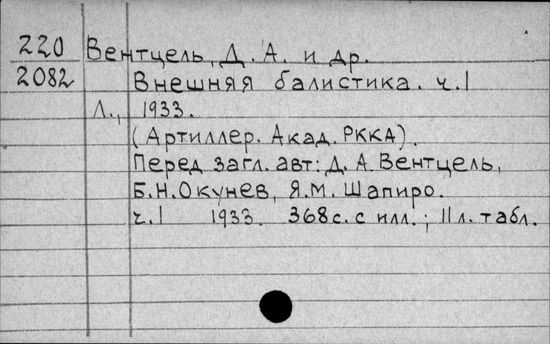 220 Вентцель, Д. А. и др.
2082 Внешняя балистика. ч.1
Л., 1933.
(Артиллер. Акад. РККА).
Перед загл. авт: Д. А. Вентцель,
Б.Н. Окунев, Я.М. Шапиро.
ч.1 1933. 368 с. с илл.; 11 л. табл.